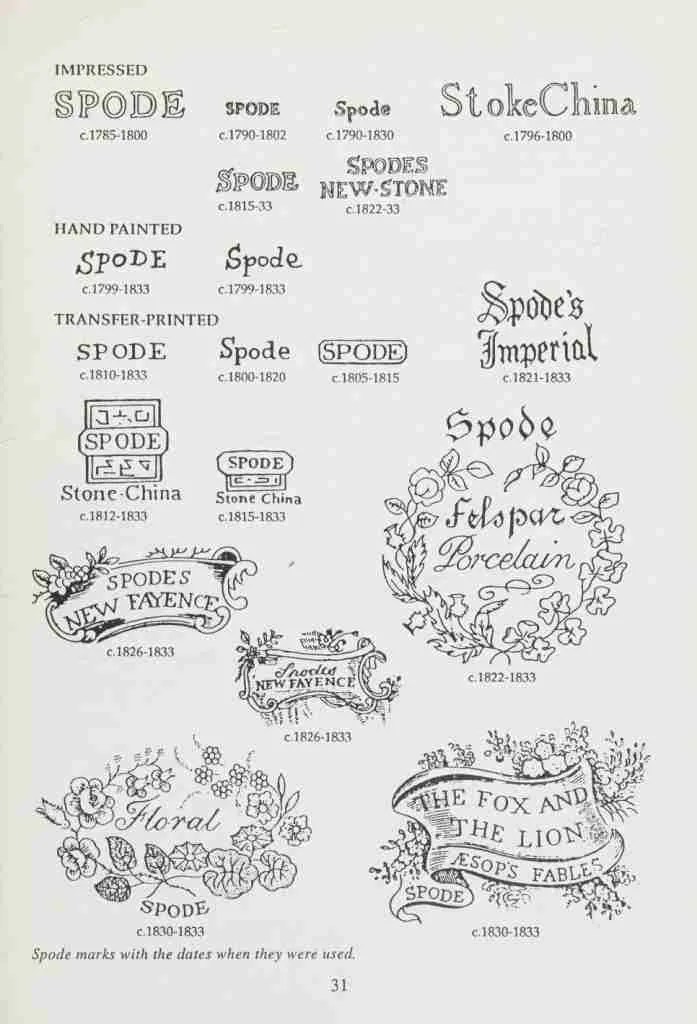 IMPRESSED
SPODE
c.1785-1800
SPODE
c.1790-1802
Spode
c.1790-1830
StokeChina
c.1796-1800
SPODE
c.1815-33
SPODES
NEW-STONE
c.1822-33
HAND PAINTED
SPODE
c.1799-1833
Spode
c.1799-1833
Spode's
Imperial
c.1821-1833
TRANSFER-PRINTED
SPODE
c.1810-1833
Spode
c.1800-1820
SPODE
c.1805-1815
SPODE
Stone-China
c.1812-1833
SPODE
Stone China
c.1815-1833
Spode
Felspar
Porcelain
c.1822-1833
SPODE'S
NEW FAYENCE
c.1826-1833
Spodes
NEW FAYENCE
c.1826-1833
Floral
SPODE
c.1830-1833
THE FOX AND
THE LION
ÆSOP'S FABLES
SPODE
c.1830-1833
Spode marks with the dates when they were used.
31